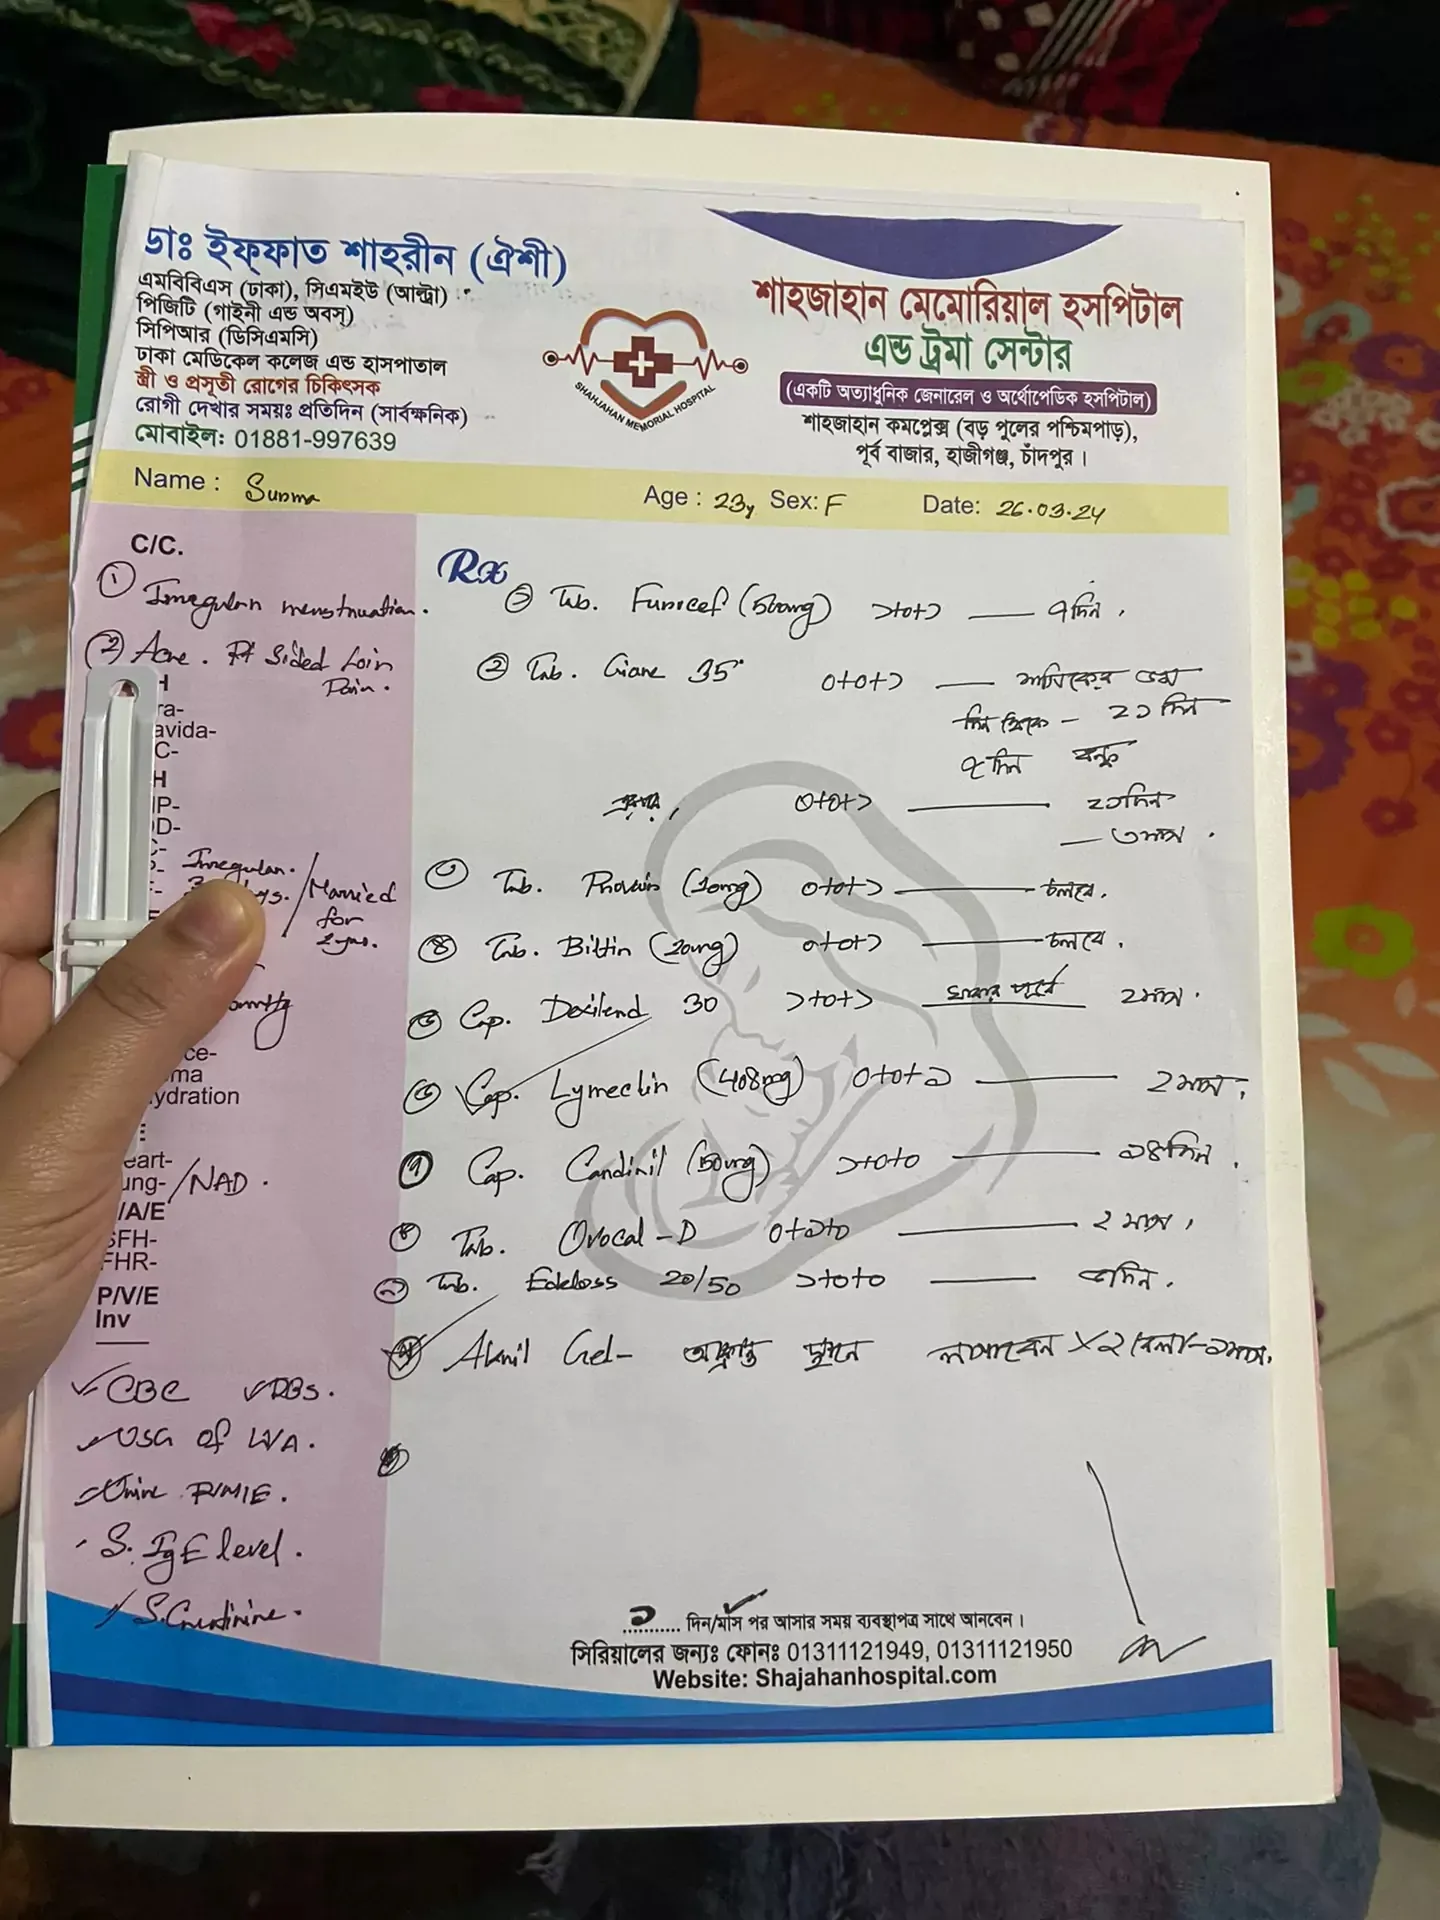 ডাঃ ইফ্ফাত শাহরীন (ঐশী)
এমবিবিএস (ঢাকা), সিএমইউ (আল্ট্রা)
পিজিটি (গাইনী এন্ড অবস্)
সিপিআর (ডিসিএমসি)
ঢাকা মেডিকেল কলেজ এন্ড হাসপাতাল
স্ত্রী ও প্রসূতী রোগের চিকিৎসক
রোগী দেখার সময়ঃ প্রতিদিন (সার্বক্ষনিক)
মোবাইল: 01881-997639
SHAHJAHAN MEMORIAL HOSPITAL
শাহজাহান মেমোরিয়াল হসপিটাল
এন্ড ট্রমা সেন্টার
(একটি অত্যাধুনিক জেনারেল ও অর্থোপেডিক হসপিটাল)
শাহজাহান কমপ্লেক্স (বড় পুলের পশ্চিমপাড়),
পূর্ব বাজার, হাজীগঞ্জ, চাঁদপুর।
Name : Age : 23y Sex: F Date: 26.03.24
C/C.
① Irregular menstruation.
② Acne. Rt Sided Loin
Pain.
H
ra-
avida-
C-
H
IP-
D-
C-
Irregular.
/Married
for
2yrs.
ce-
ma
ydration
E
eart-
ung- /NAD.
/A/E
SFH-
FHR-
P/V/E
Inv
CBC RBS.
USG of W/A.
Urine R/M/E.
S. IgE level.
S. Creatinine.
Rx
① Tab. Furocef (500mg) ১+০+১ — ৭দিন,
② Tab. Giane 35 ০+০+১ — মাসিকের ৫ম
দিন থেকে - ২১ দিন
৭দিন বন্ধ
০+০+১ — ২১দিন
— ৩মাস.
৩ Tab. (10mg) ০+০+১ — চলবে.
৪ Tab. Biltin (20mg) ০+০+১ — চলবে.
৫ Cap. Dexilend 30 ১+০+১ — খাবার পূর্বে ২মাস.
৬ Cap. Lymeclin (408mg) ০+০+১ — ২মাস,
৭ Cap. Candinil (50mg) ১+০+০ — ১৪দিন.
৮ Tab. Ovocal-D ০+১+০ — ২ মাস,
৯ Tab. Edeloss 20/50 ১+০+০ — ৫দিন.
Gel- আক্রান্ত স্থানে লাগাবেন X ২ বেলা-১মাস.
১ দিন/মাস পর আসার সময় ব্যবস্থাপত্র সাথে আনবেন।
সিরিয়ালের জন্যঃ ফোনঃ 01311121949, 01311121950
Website: Shajahanhospital.com